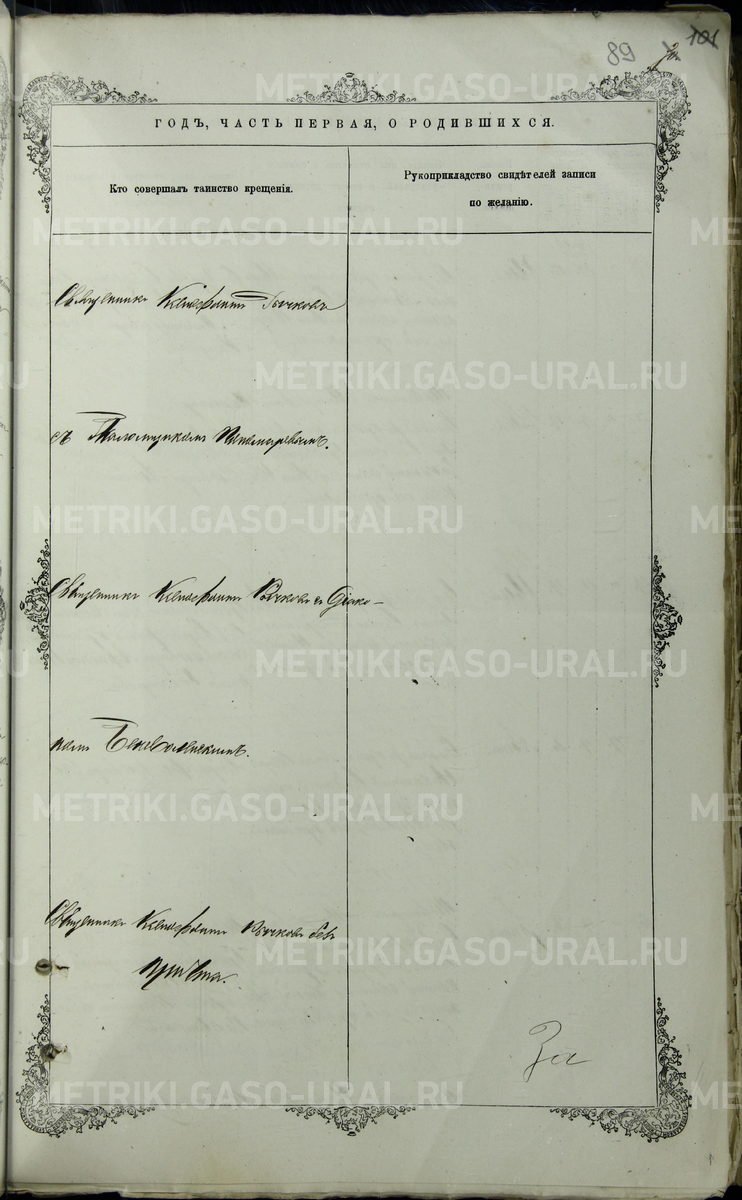 89
101
ГОДЪ, ЧАСТЬ ПЕРВАЯ, О РОДИВШИХСЯ.
Кто совершалъ таинство крещенія.
Рукоприкладство свидѣтелей записи
по желанію.
Священникъ Ксенофонтъ Бычковъ
съ Псаломщикомъ Пономаревымъ.
Священникъ Ксенофонтъ Бычковъ съ Діако-
номъ
Священникъ Ксенофонтъ Бычковъ безъ
причта.
За
METRIKI.GASO-URAL.RU